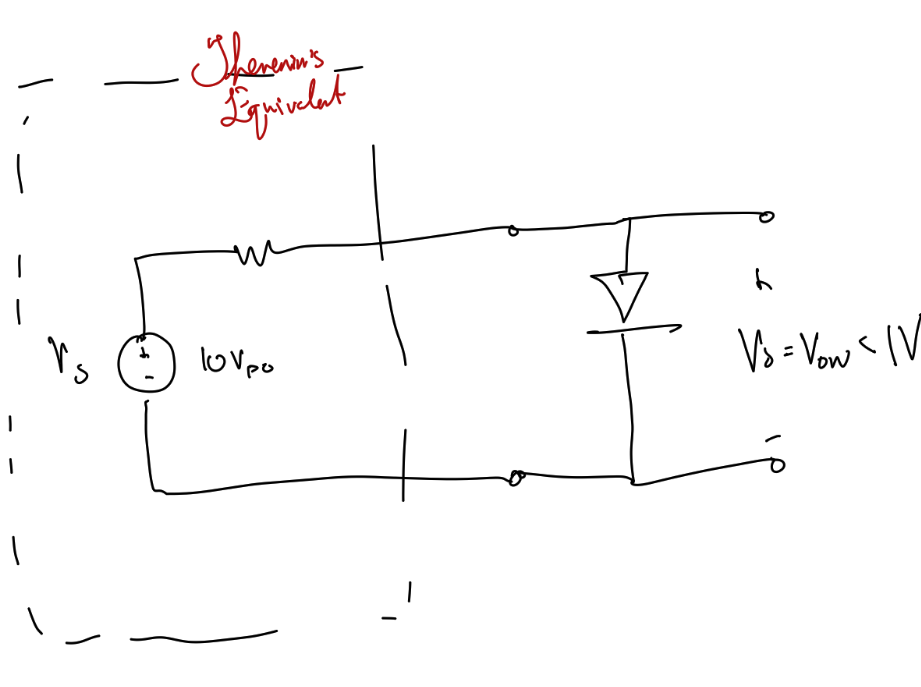 Thevenin's
Equivalent
Vs
+
-
10Vpo
+
Vo = Vow < 1V
-